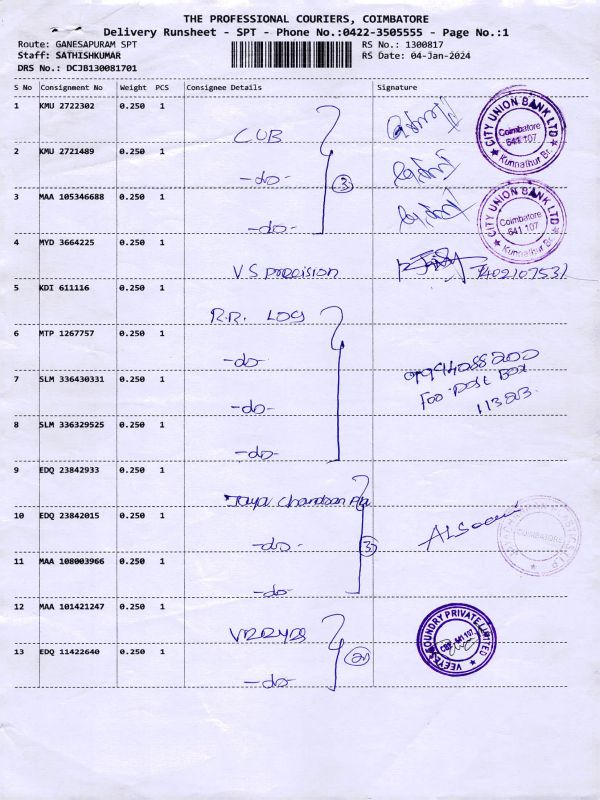 THE PROFESSIONAL COURIERS, COIMBATORE
Delivery Runsheet - SPT - Phone No.:0422-3505555 - Page No.:1
Route: GANESAPURAM SPT
Staff: SATHISHKUMAR
DRS No.: DCJB130081701
RS No.: 1300817
RS Date: 04-Jan-2024
S No Consignment No Weight PCS Consignee Details Signature
1 KMU 2722302 0.250 1
CUB
CITY UNION BANK LTD
Coimbatore
641 107
Kunnathur Br.
2 KMU 2721489 0.250 1
-do-
3
3 MAA 105346688 0.250 1
-do-
CITY UNION BANK LTD
Coimbatore
641 107
Kunnathur Br.
4 MYD 3664225 0.250 1
VS precision
7402107531
5 KDI 611116 0.250 1
R.R. LOG
6 MTP 1267757 0.250 1
-do-
7 SLM 336430331 0.250 1
-do-
8 SLM 336329525 0.250 1
-do-
9 EDQ 23842933 0.250 1
Jaya Chandran
10 EDQ 23842015 0.250 1
-do-
3
COIMBATORE
11 MAA 108003966 0.250 1
-do-
12 MAA 101421247 0.250 1
FOUNDRY PRIVATE LIMITED
CBE 641 107
13 EDQ 11422640 0.250 1
-do-